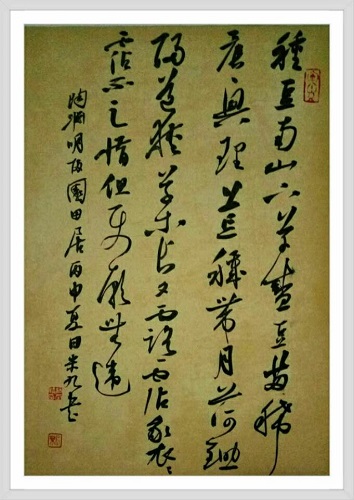 種豆南山下草盛豆苗稀
晨興理荒穢帶月荷鋤
歸道狹草木長夕露沾我衣々
霑不足惜但使願無違
陶淵明歸園田居丙申夏日